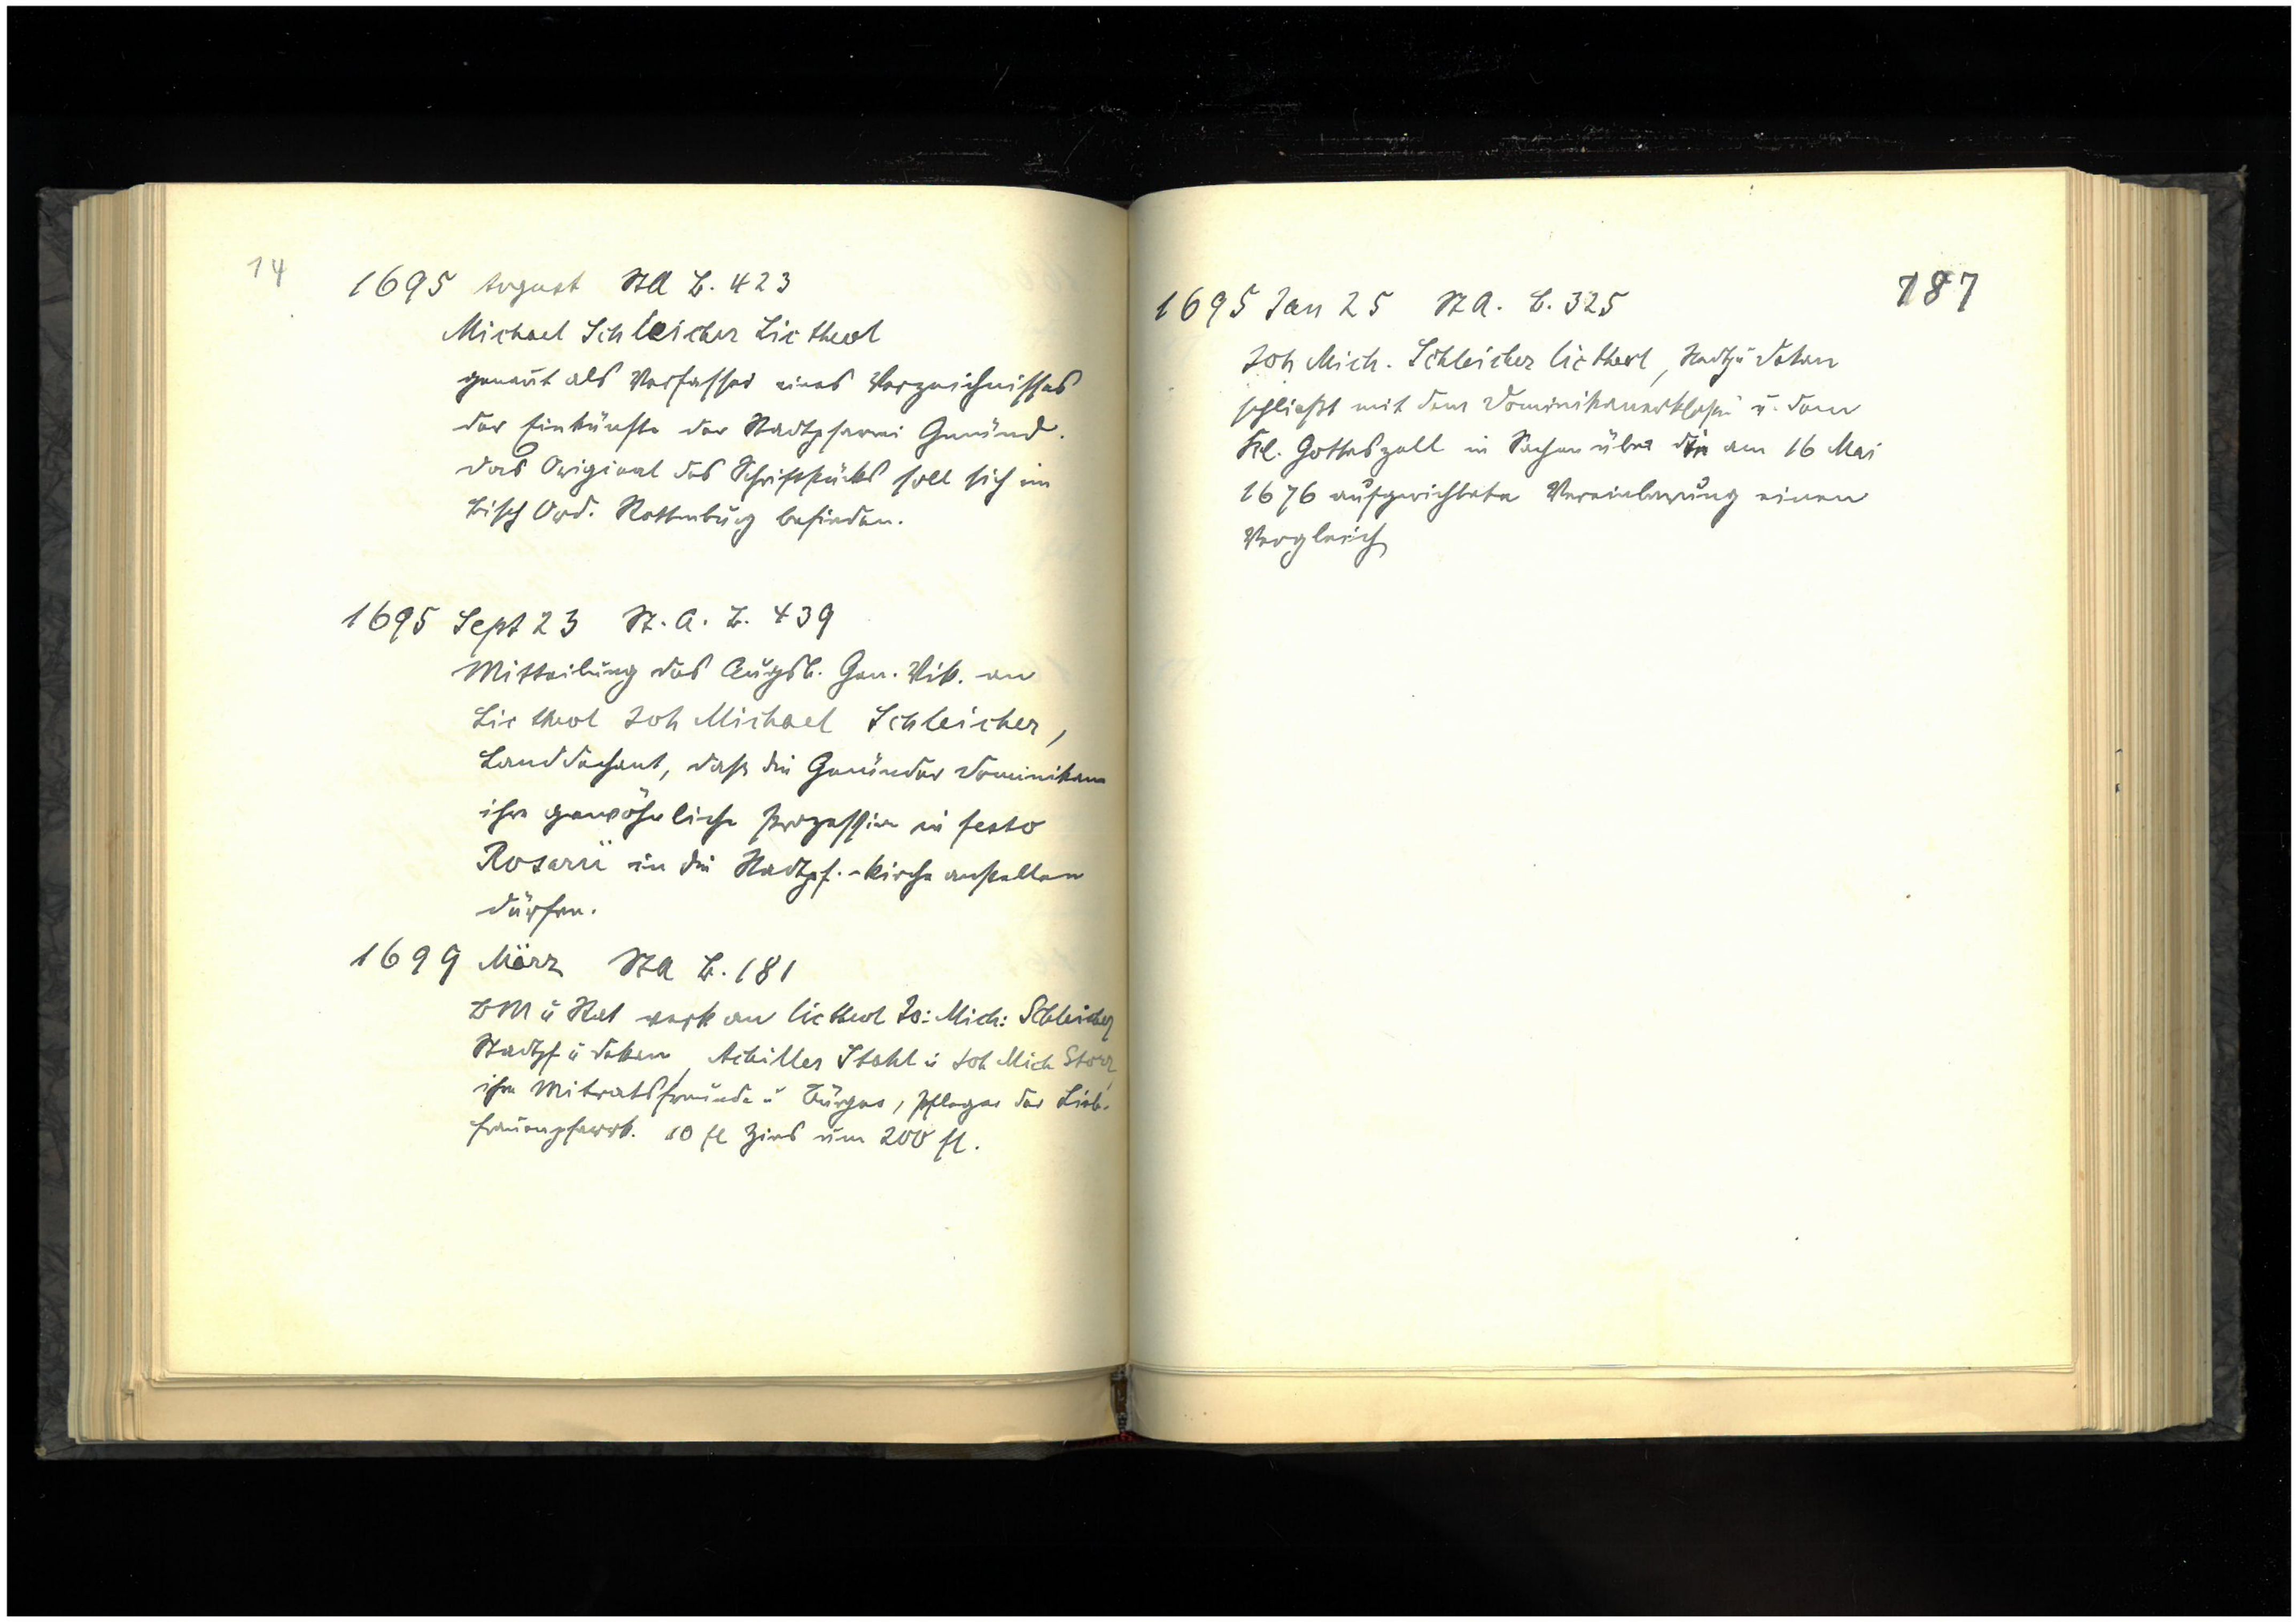 14
1695 August StA B. 423
Michael Schleicher Lic theol
genannt als Verfasser eines Verzeichnisses
der Einkünfte der Stadtpfarrei Gmünd.
Das Original des Schriftstücks soll sich im
Bisch Ord. Rottenburg befinden.
1695 Sept 23 St. A. B. 439
Mitteilung des Augsb. Gen. Vik. an
Lic theol Joh Michael Schleicher,
Landdechant, daß die Gmünder Dominikaner
ihre gewöhnliche Prozession in festo
Rosarii in die Stadtpf.-kirche anstellen
dürfen.
1699 März StA B. 181
BM u Rat verk an lic theol Jo: Mich: Schleicher
Stadtpf u Dekan, Achilles Stahl u Joh Mich Storr,
ihre Mitratsfreunde u Bürger, Pfleger der Lieb-
frauenpfarrk. 10 fl Zins um 200 fl.
187
1695 Jan 25 St A. B. 325
Joh Mich. Schleicher lic theol, Stadtpf u Dekan
schließt mit dem Dominikanerkloster u. dem
Kl. Gotteszell in Sachen über die am 16 Mai
1676 aufgerichtete Vereinbarung einen
Vergleich